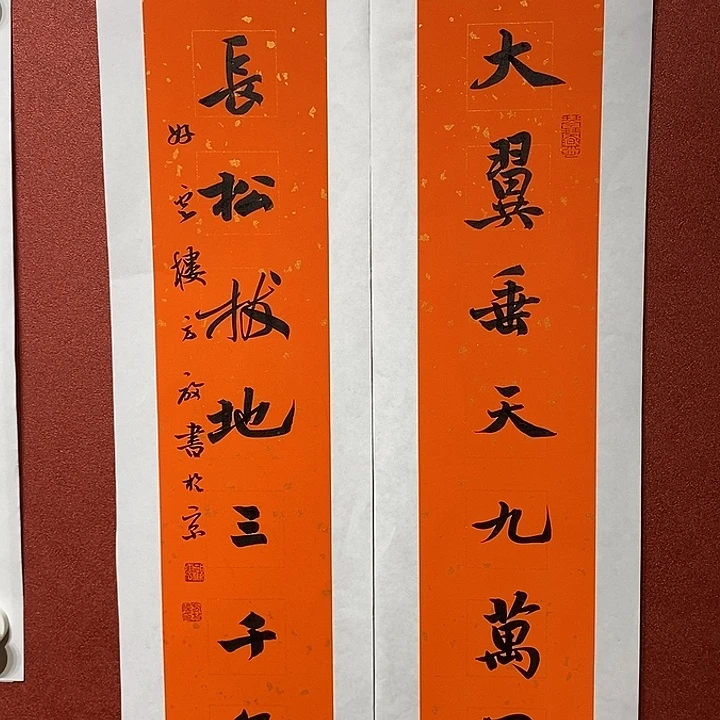 大翼垂天九萬
長松拔地三千
好雲樓主方放書於京